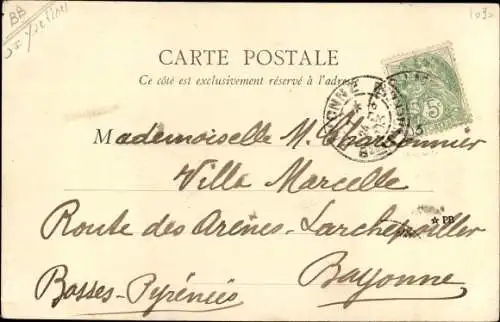 BB
CARTE POSTALE
Ce côté est exclusivement réservé à l'adresse
Mademoiselle M. Charbonnier
Villa Marcelle
★ PB
Route des Arènes - Larchepailler
Bayonne
Basses-Pyrénées
5
BAYONNE